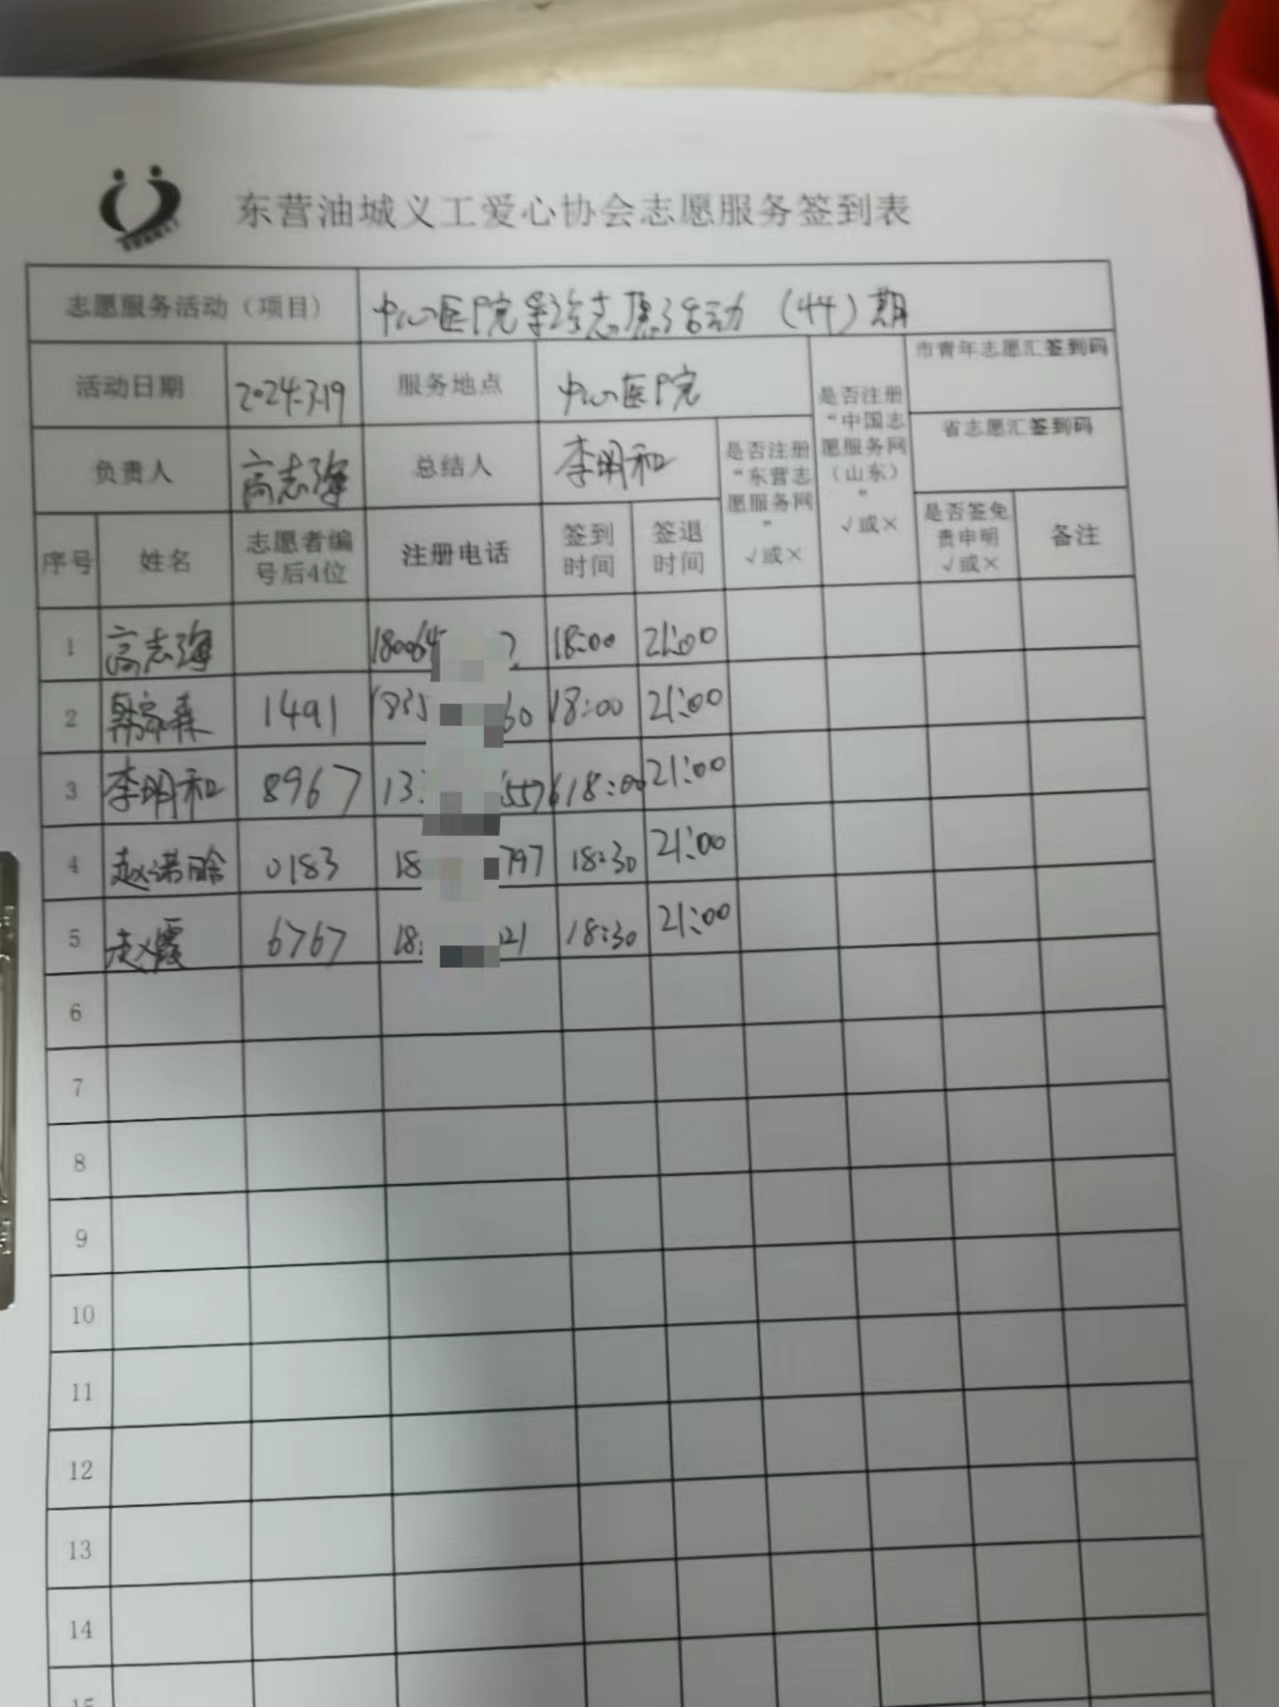 东营油城义工爱心协会志愿服务签到表
志愿服务活动（项目） 中心医院 志愿活动（44）期
活动日期 2024.3.19 服务地点 中心医院 是否注册“中国志愿服务网（山东）”√或× 市青年志愿汇签到码
省志愿汇签到码
负责人 高志海 总结人 李明和 是否注册“东营志愿服务网”√或×
序号 姓名 志愿者编号后4位 注册电话 签到时间 签退时间 是否签免责申明√或× 备注
1 高志海 18:00 21:00
2 1491 60 18:00 21:00
3 李明和 8967 18:00 21:00
4 赵诺晗 0183 18 797 18:30 21:00
5 赵霞 6767 18 21 18:30 21:00
6
7
8
9
10
11
12
13
14
15